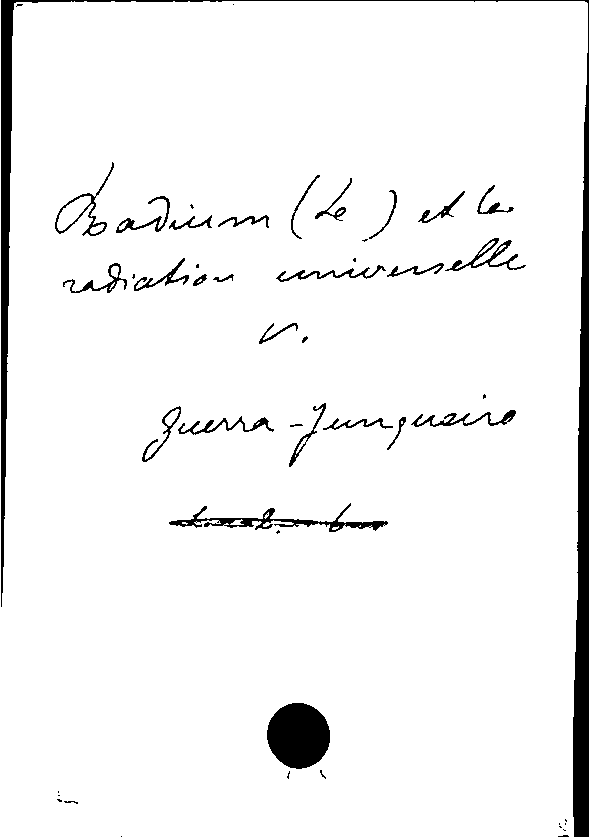 Radium (Le) et la
radiation universelle
V.
Guerra-Junqueiro